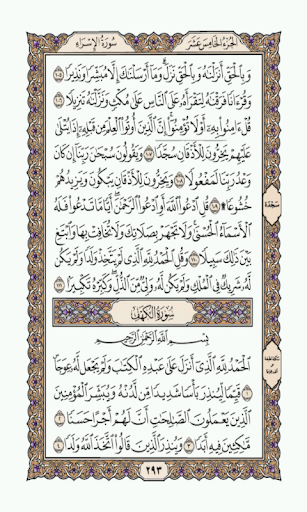 الجُزْءُ الخَامِسَ عَشَرَ
سُورَةُ الإِسْرَاءِ
وَبِٱلْحَقِّ أَنزَلْنَٰهُ وَبِٱلْحَقِّ نَزَلَ ۗ وَمَآ أَرْسَلْنَٰكَ إِلَّا مُبَشِّرًا وَنَذِيرًا ١٠٥
وَقُرْءَانًا فَرَقْنَٰهُ لِتَقْرَأَهُۥ عَلَى ٱلنَّاسِ عَلَىٰ مُكْثٍ وَنَزَّلْنَٰهُ تَنزِيلًا ١٠٦
قُلْ ءَامِنُوا۟ بِهِۦٓ أَوْ لَا تُؤْمِنُوٓا۟ ۚ إِنَّ ٱلَّذِينَ أُوتُوا۟ ٱلْعِلْمَ مِن قَبْلِهِۦٓ إِذَا يُتْلَىٰ
عَلَيْهِمْ يَخِرُّونَ لِلْأَذْقَانِ سُجَّدًا ١٠٧ وَيَقُولُونَ سُبْحَٰنَ رَبِّنَآ إِن كَانَ
وَعْدُ رَبِّنَا لَمَفْعُولًا ١٠٨ وَيَخِرُّونَ لِلْأَذْقَانِ يَبْكُونَ وَيَزِيدُهُمْ
خُشُوعًا ۩ ١٠٩ قُلِ ٱدْعُوا۟ ٱللَّهَ أَوِ ٱدْعُوا۟ ٱلرَّحْمَٰنَ ۖ أَيًّا مَّا تَدْعُوا۟ فَلَهُ
ٱلْأَسْمَآءُ ٱلْحُسْنَىٰ ۚ وَلَا تَجْهَرْ بِصَلَاتِكَ وَلَا تُخَافِتْ بِهَا وَٱبْتَغِ
بَيْنَ ذَٰلِكَ سَبِيلًا ١١٠ وَقُلِ ٱلْحَمْدُ لِلَّهِ ٱلَّذِى لَمْ يَتَّخِذْ وَلَدًا وَلَمْ يَكُن
لَّهُۥ شَرِيكٌ فِى ٱلْمُلْكِ وَلَمْ يَكُن لَّهُۥ وَلِىٌّ مِّنَ ٱلذُّلِّ ۖ وَكَبِّرْهُ تَكْبِيرًۢا ١١١
سُورَةُ الكَهْفِ
بِسْمِ ٱللَّهِ ٱلرَّحْمَٰنِ ٱلرَّحِيمِ
ٱلْحَمْدُ لِلَّهِ ٱلَّذِىٓ أَنزَلَ عَلَىٰ عَبْدِهِ ٱلْكِتَٰبَ وَلَمْ يَجْعَل لَّهُۥ عِوَجَا
١ قَيِّمًا لِّيُنذِرَ بَأْسًا شَدِيدًا مِّن لَّدُنْهُ وَيُبَشِّرَ ٱلْمُؤْمِنِينَ
ٱلَّذِينَ يَعْمَلُونَ ٱلصَّٰلِحَٰتِ أَنَّ لَهُمْ أَجْرًا حَسَنًا
٢ مَّٰكِثِينَ فِيهِ أَبَدًا ٣ وَيُنذِرَ ٱلَّذِينَ قَالُوا۟ ٱتَّخَذَ ٱللَّهُ وَلَدًا ٤
٢٩٣
سَجْدَة